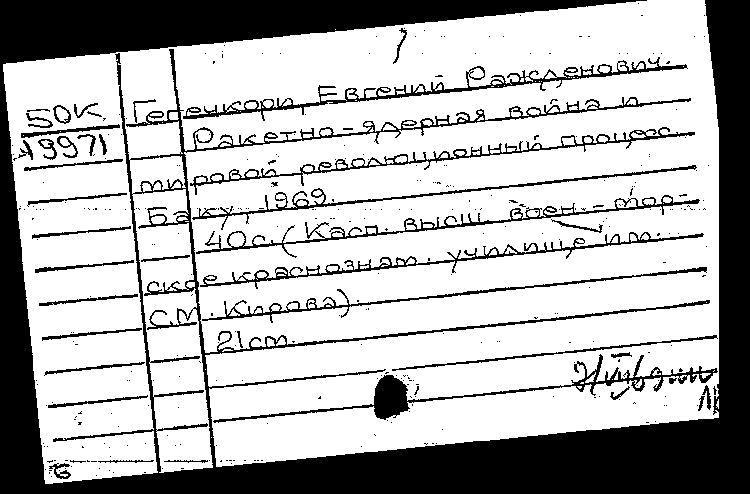 50К Гегечкори, Евгений Ражденович.
19971 Ракетно-ядерная война и
мировой революционный процесс.
Баку, 1969.
40с. (Касп. высш. воен.-мор-
ское краснознам. училище им.
С.М. Кирова).
21см.
Б